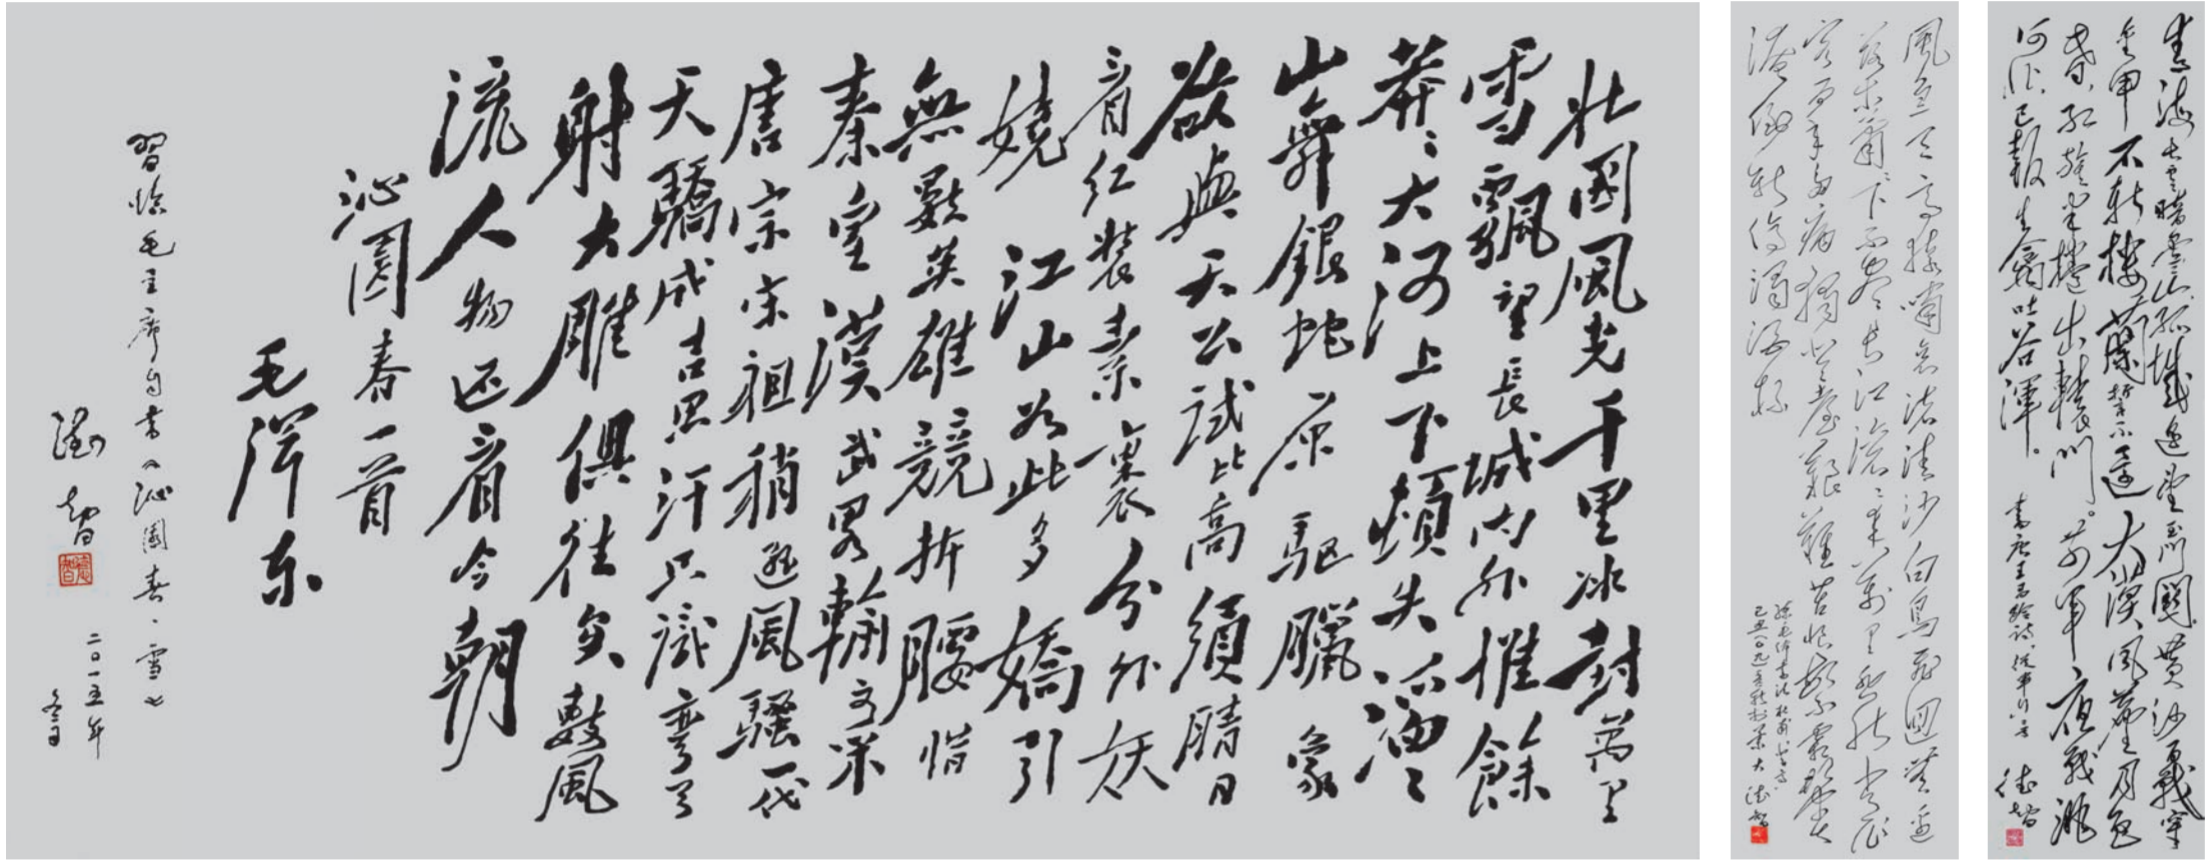 北國風光千里冰封萬里
雪飄望長城内外惟餘
莽〻大河上下頓失滔〻
山舞銀蛇原驱臘象
欲與天公試比高須晴日
看红装素裹分外妖
嬈江山如此多嬌引
無數英雄競折腰惜
秦皇漢武畧輸文采
唐宗宋祖稍遜風騷一代
天驕成吉思汗只識彎弓
射大雕俱往矣數風
流人物还看今朝
沁園春一首
毛泽东
習临毛主席自书《沁園春·雪》
二〇一五年冬月
德智
風急天高猿嘯哀渚清沙白鳥飛迴無邊
落木蕭〻下不盡長江滚〻来萬里悲秋常作
客百年多病獨登臺艱難苦恨繁霜鬓
潦倒新停濁酒杯
德智
青海長雲暗雪山孤城遥望玉門關黄沙百戰穿
金甲不斬樓蘭誓不還大漠風塵日色
昏红旗半捲出轅門。前軍夜戰洮
河北已報生擒吐谷渾.
書唐王昌龄詩從軍行二首
德智